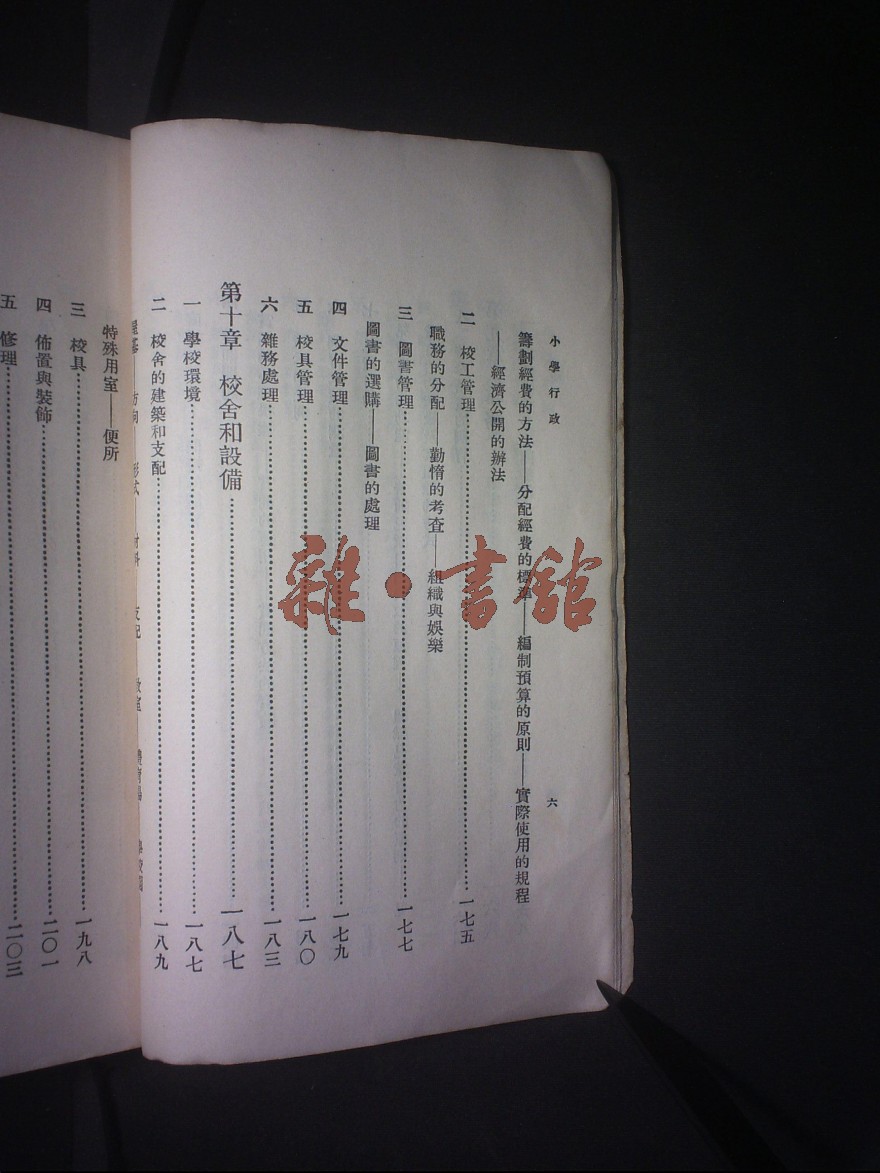 小學行政
六
籌劃經費的方法——分配經費的標準——編制預算的原則——實際使用的規程
——經濟公開的辦法
二 校工管理……一七五
職務的分配——勤惰的考查——組織與娛樂
三 圖書管理……一七七
圖書的選購——圖書的處理
四 文件管理……一七九
五 校具管理……一八〇
六 雜務處理……一八三
第十章 校舍和設備……一八七
一 學校環境……一八七
二 校舍的建築和支配……一八九
方向 形式 材料 支配 教室 學校園
特殊用室——便所
三 校具……一九八
四 佈置與裝飾……二〇一
五 修理……二〇三
雜·書館